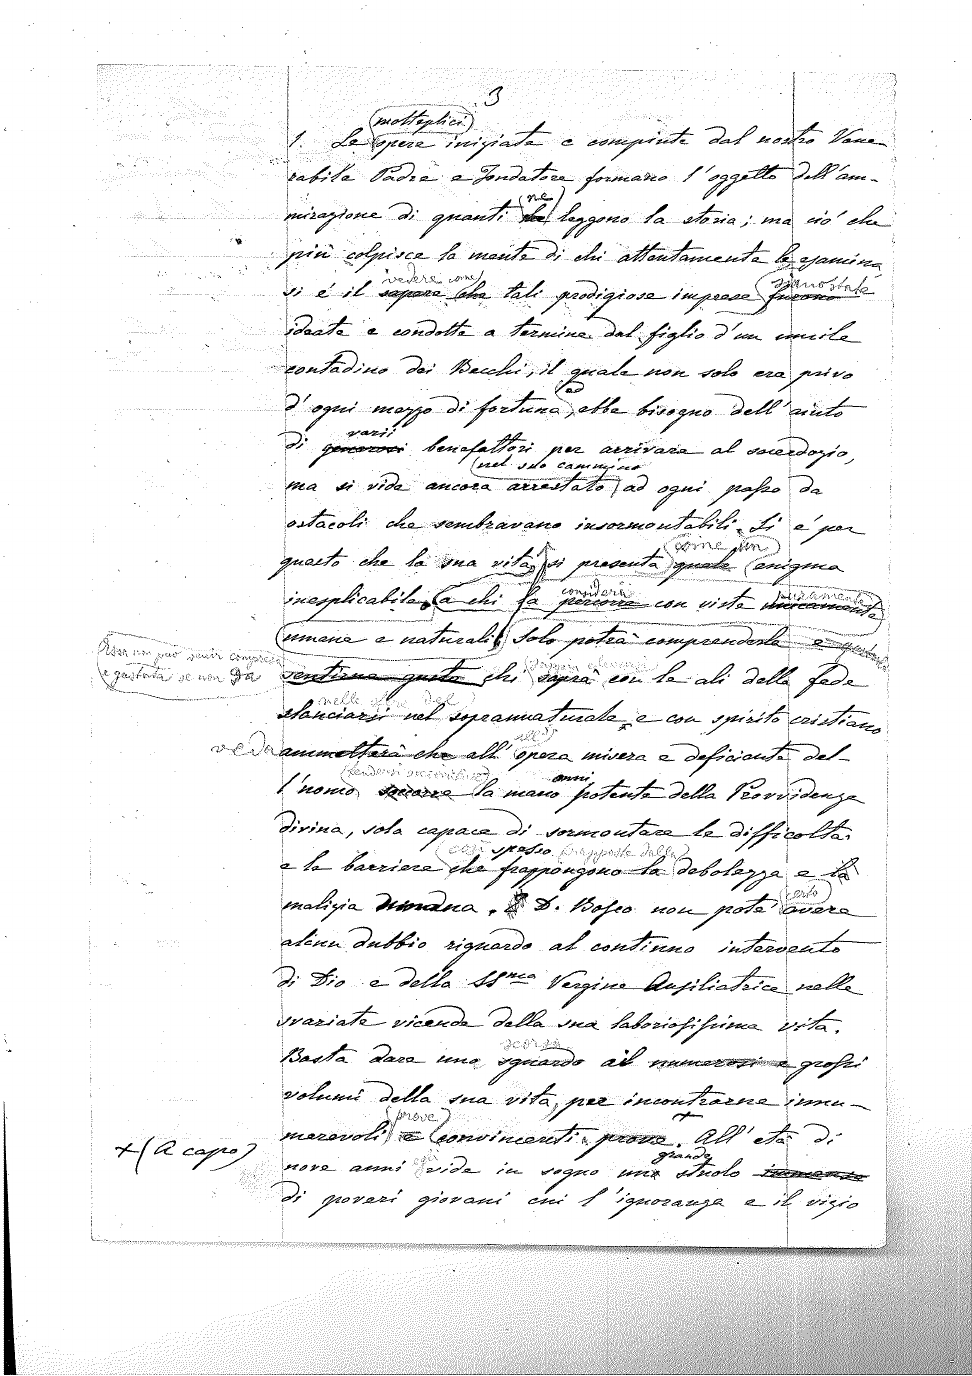 3
molteplici
1. Le opere iniziate e compiute dal nostro Vene-
rabile Padre e Fondatore formano l'oggetto dell'am-
ne
mirazione di quanti leggono la storia; ma ciò che
più colpisce la mente di chi attentamente le esamina
vedere come siano state
si è il sapere che tali prodigiose imprese furono
ideate e condotte a termine dal figlio d'un umile
contadino dei Becchi, il quale non solo era privo
ed
d'ogni mezzo di fortuna, ebbe bisogno dell'aiuto
varii
di generosi benefattori per arrivare al sacerdozio,
nel suo cammino
ma si vide ancora arrestato ad ogni passo da
ostacoli che sembravano insormontabili. Si è per
come un
questo che la sua vita, si presenta quale enigma
consideri puramente
inesplicabile, a chi la percorre con viste unicamente
umane e naturali; solo potrà comprenderla e gustarla
Essa non può venir compresa
e gustata se non da
sentirne gusto chi saprà con le ali della fede
nelle sfere del
slanciarsi nel soprannaturale, e con spirito cristiano
all'
veda
ammetterà che all'opera misera e deficiente del-
l'uomo soccorre la mano potente della Provvidenza
divina, sola capace di sormontare le difficoltà
così spesso frapposte dalla
e le barriere che frappongono la debolezza e la
certo
malizia umana. D. Bosco non potè avere
alcun dubbio riguardo al continuo intervento
di Dio e della SSma Vergine Ausiliatrice nelle
svariate vicende della sua laboriosissima vita.
scorsa
Basta dare uno sguardo ai numerosi e grossi
volumi della sua vita, per incontrarne innu-
prove +
merevoli e convincenti prove. All'età di
+ (A capo)
grande
nove anni vide in sogno uno stuolo immenso
di poveri giovani cui l'ignoranza e il vizio